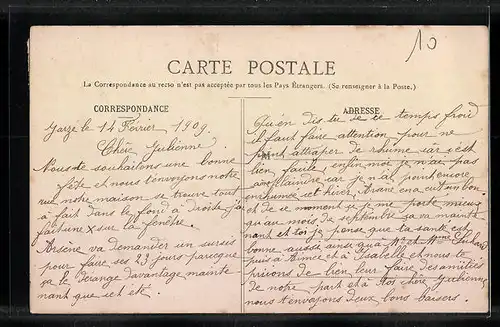 10
CARTE POSTALE
La Correspondance au recto n'est pas acceptée par tous les Pays Étrangers. (Se renseigner à la Poste.)
CORRESPONDANCE
Jarzé le 14 Février 1909
Chère Julienne
Nous te souhaitons une bonne
fête et nous t'envoyons notre
vue notre maison se trouve tout
à fait dans le fond à droite j'ai
fait une x sur la fenêtre.
Arsène va demander un sursis
pour faire ses 23 jours parceque
ça le dérange davantage mainte
nant que cet été.
ADRESSE
Qu'en dis tu de ce temps froid
il faut faire attention pour ne
point attraper de rhume car c'est
bien facile, enfin moi je n'ai pas
à me plaindre car je n'ai pas encore
enrhumée cet hiver, Arsène en a eut un bon
et de ce moment si je me porte mieux
qu'au mois de septembre ça va mainte
nant et toi je pense que ta santé est
bonne aussi ainsi qu'à Mr et Mme
puis à Aimée et à Isabelle et nous te
prions de bien leur faire des amitiés
de notre part et à toi chère Julienne
nous t'envoyons deux bons baisers.